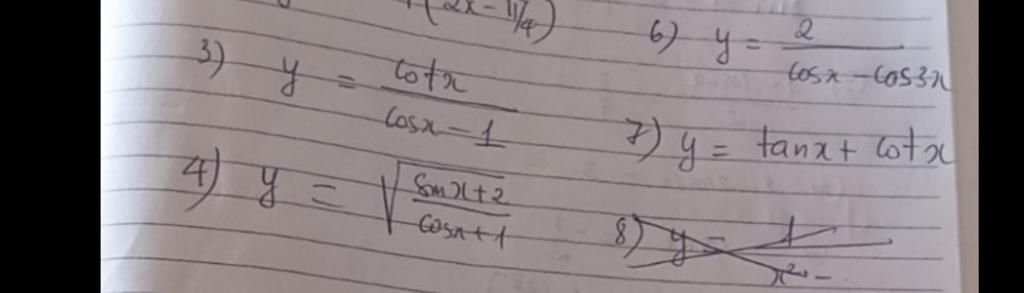 (2x - π/4)
3) y = cotx / cosx - 1
4) y = √(sinx+2 / cosx+1)
6) y = 2 / cosx - cos3x
7) y = tanx + cotx
8) y = 1 / x² -